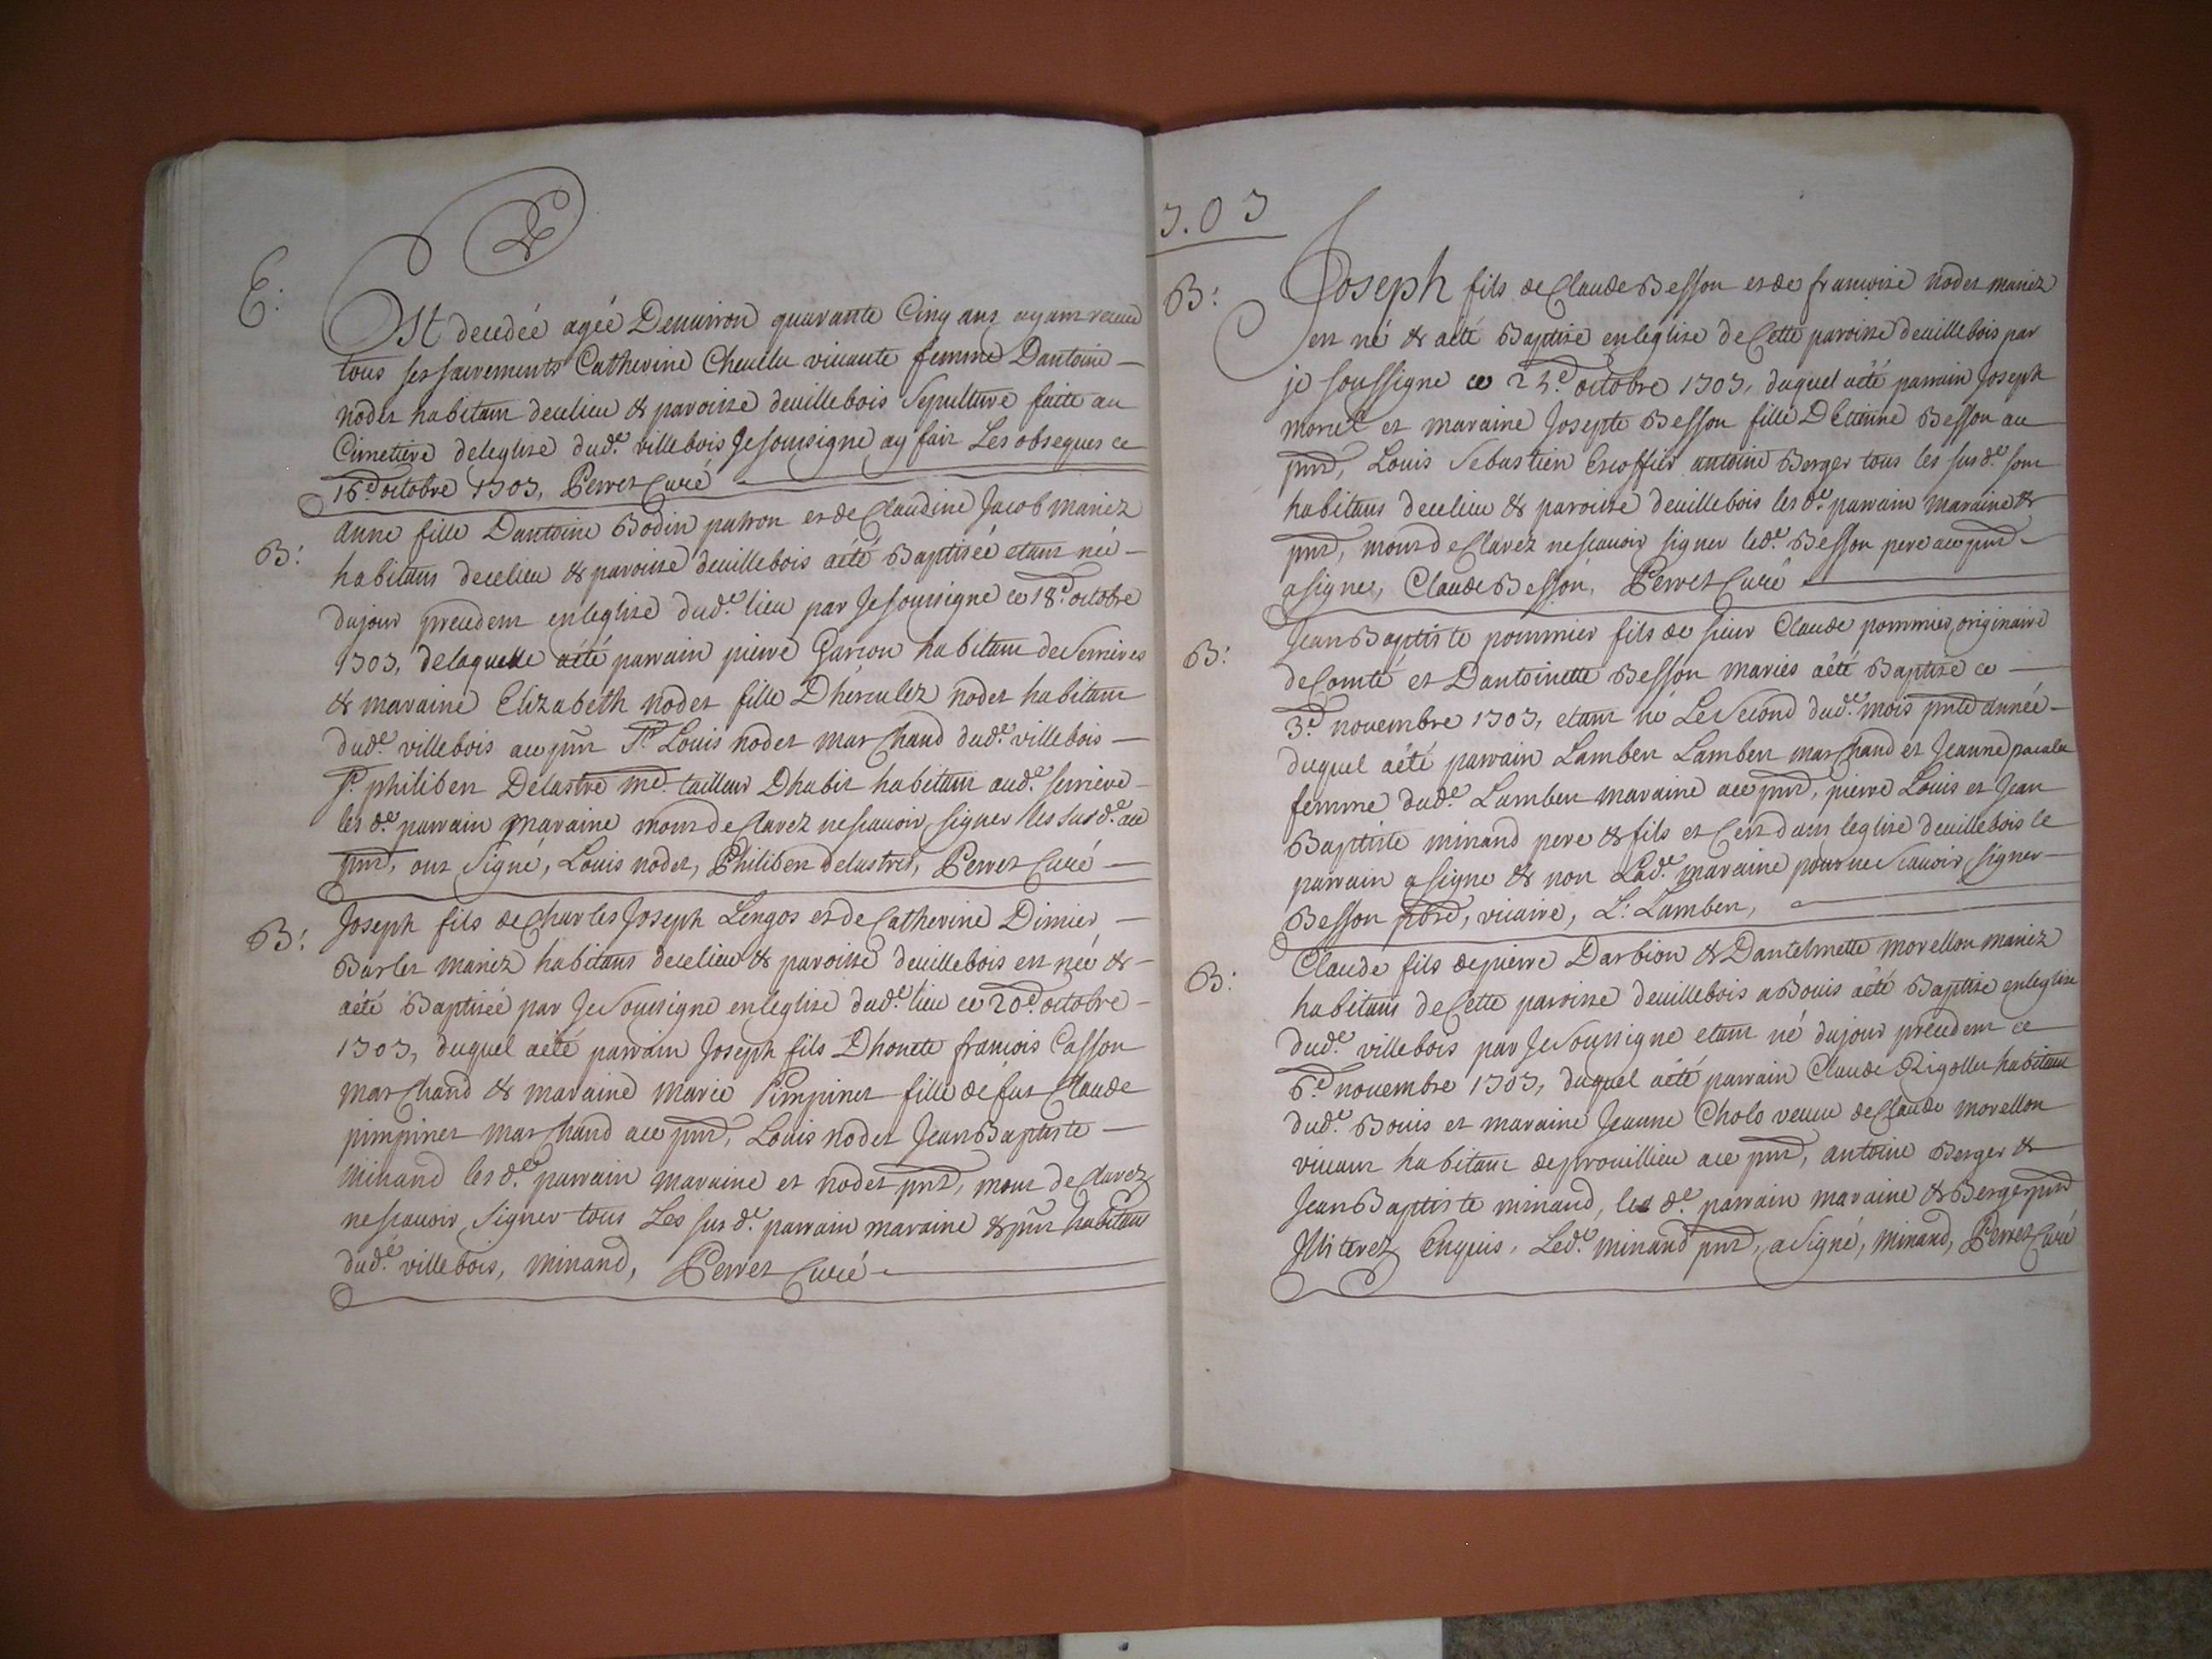 E:
Est decedée agée Denuiron quarante Cinq ans ayant receu
tous ses sacrements Catherine Cheuelu viuante femme Dantoine
nodet habitant decelieu & paroisse deuillebois Sepulture faite au
Cimetiere deleglise dud.e villebois Jesoussigne ay fait Les obseques ce
16.e octobre 1703, Perret Curé
B:
Anne fille Dantoine Bodin patron et de Claudine Jacob mariez
habitans decelieu & paroisse deuillebois aété Baptisée etant née
dujour precedent enleglise dud.e lieu par Jesoussigne ce 18.e octobre
1703, delaquelle aété parrain pierre Garcon habitant de Serrieres
& maraine Elizabeth nodet fille Dhérculez nodet habitant
dud.e villebois au pnt S.r Louis nodet marchand dud.e villebois
S.r philibert Delastre me. tailleur Dhabit habitant aud.e serriere
les d.e parrain maraine mont declarez nescauoir signer les susd.e au
pnt, ont Signé, Louis nodet, Philibert delastre, Perret Curé
B:
Joseph fils de Charles Joseph Lengos et de Catherine Dimier
Barlet mariez habitans decelieu & paroisse deuillebois est née &
aété Baptisée par JeSoussigne enleglise dud.e lieu ce 20.e octobre
1703, duquel aété parrain Joseph fils Dhonete francois Casson
marchand & maraine marie Pimpinet fille de fut Claude
pimpinet marchand au pnt, Louis nodet Jean Baptiste
minand les d.e parrain maraine et nodet pnt, mont declarez
nescauoir Signer tous Les sus d.e parrain maraine & pnt habitans
dud.e villebois, minand, Perret Curé
703
B:
Joseph fils de Claude Besson et de francoise nodet mariez
est né & aété Baptise enleglise de Cette paroisse deuillebois par
je soussigne ce octobre 1703, duquel aété parrain Joseph
morel et maraine Josepte Besson fille DEtienne Besson au
pnt, Louis Sebastien Escoffier antoine Berger tous les susd.e sont
habitans decelieu & paroisse deuillebois les d.e parrain maraine &
pnt, mont declarez nescauoir signer led.e Besson pere au pnt
a signe, Claude Besson, Perret Curé
B:
Jean Baptiste pommier fils de sieur Claude pommier, originaire
de Comté et Dantoinette Besson mariés aété Baptise ce
3.e nouembre 1703, etant né Le Second dud.e mois pnte année
duquel aété parrain Lambert Lambert marchand et Jeanne
femme dud.e Lambert maraine au pnt, pierre Louis et Jean
Baptiste minand pere & fils et Cest dans leglise deuillebois le
parrain a signe & non Lad.e maraine pour ne Scauoir signer
Besson pbre, vicaire, L: Lambert,
B:
Claude fils de pierre Darbion & Dantelmette morellon mariez
habitans de Cette paroisse deuillebois a Bouis aété Baptise enleglise
dud.e villebois par JeSoussigne etant né dujour precedent ce
6.e nouembre 1703, duquel aété parrain Claude Rigollet habitant
dud.e Bouis et maraine Jeanne Cholo veuue de Claude morellon
viuant habitant deprouillieu au pnt, antoine Berger &
Jean Baptiste minand, les d.e parrain maraine & Berger pnt
Illiterez Enquis, Led.e minand pnt, a Signé, minand, Perret Curé